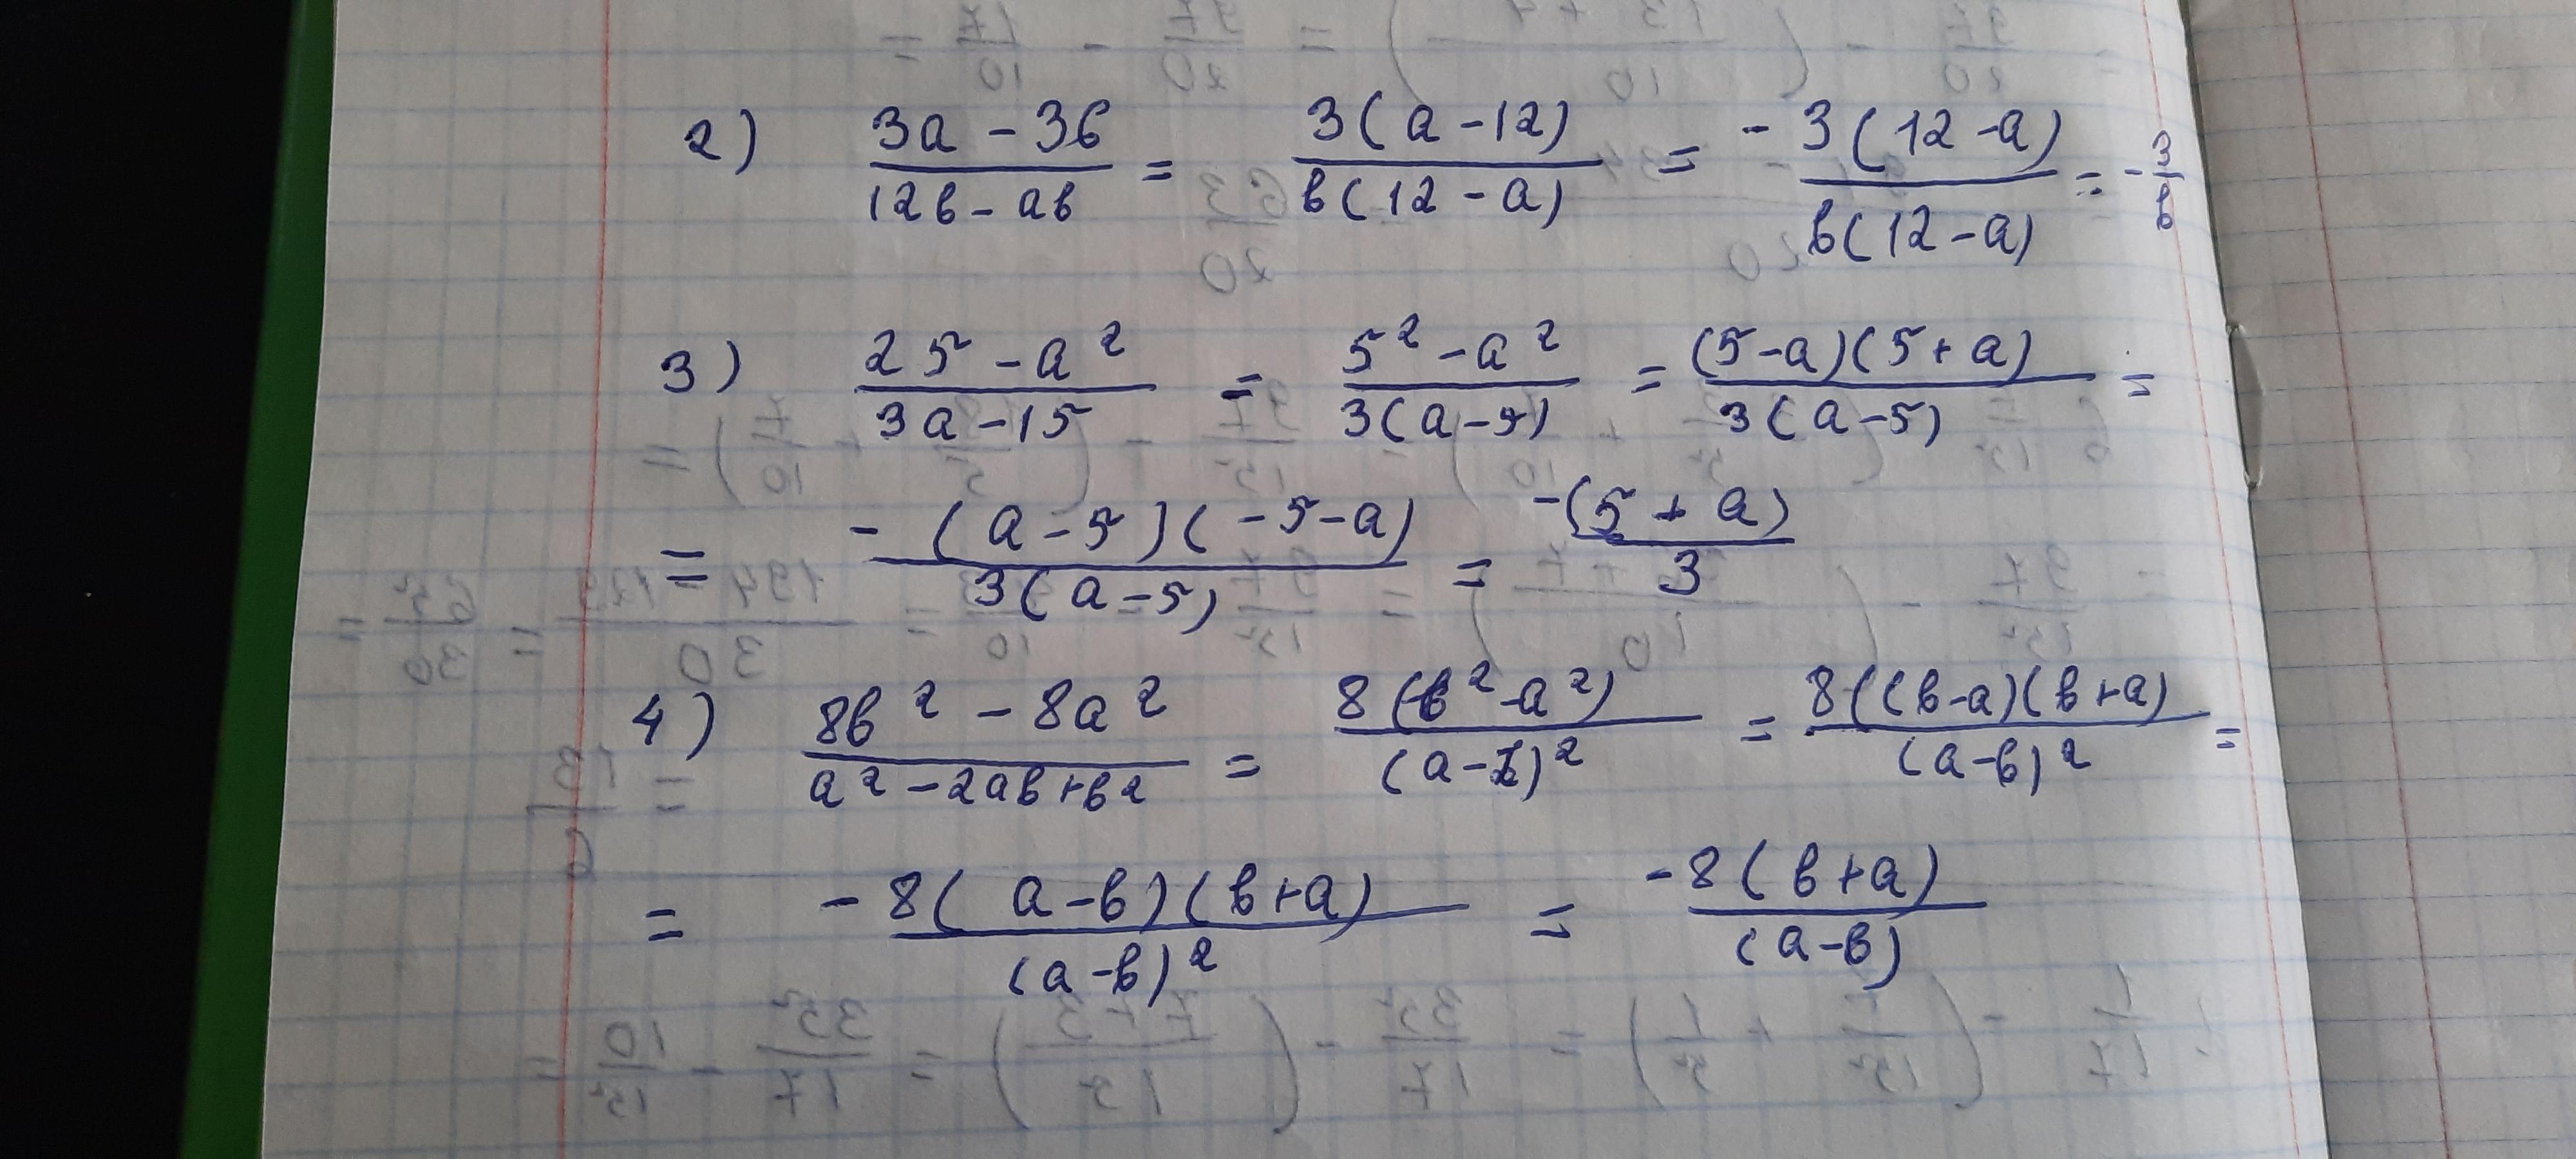 2) (3a - 36)/(12b - ab) = 3(a - 12)/b(12 - a) = -3(12 - a)/b(12 - a) = -3/b
3) (25 - a²)/(3a - 15) = (5² - a²)/3(a - 5) = (5 - a)(5 + a)/3(a - 5) =
= -(a - 5)(-5 - a)/3(a - 5) = -(5 + a)/3
4) (8b² - 8a²)/(a² - 2ab + b²) = 8(b² - a²)/(a - b)² = 8((b - a)(b + a)/(a - b)² =
= -8(a - b)(b + a)/(a - b)² = -8(b + a)/(a - b)